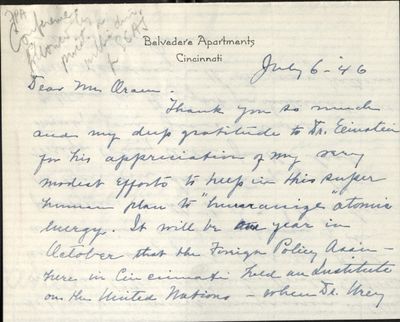 Conference
Belvedere Apartments
Cincinnati
July 6 - 46
Dear Mr Oram -
Thank you so much
and my deep gratitude to Dr. Einstein
for his appreciation of my very
modest efforts to help in this super
human plan to "humanize" atomic
energy. It will be a year in
October that the Foreign Policy Assn -
here in Cincinnati held an Institute
on the United Nations - when Dr. Urey